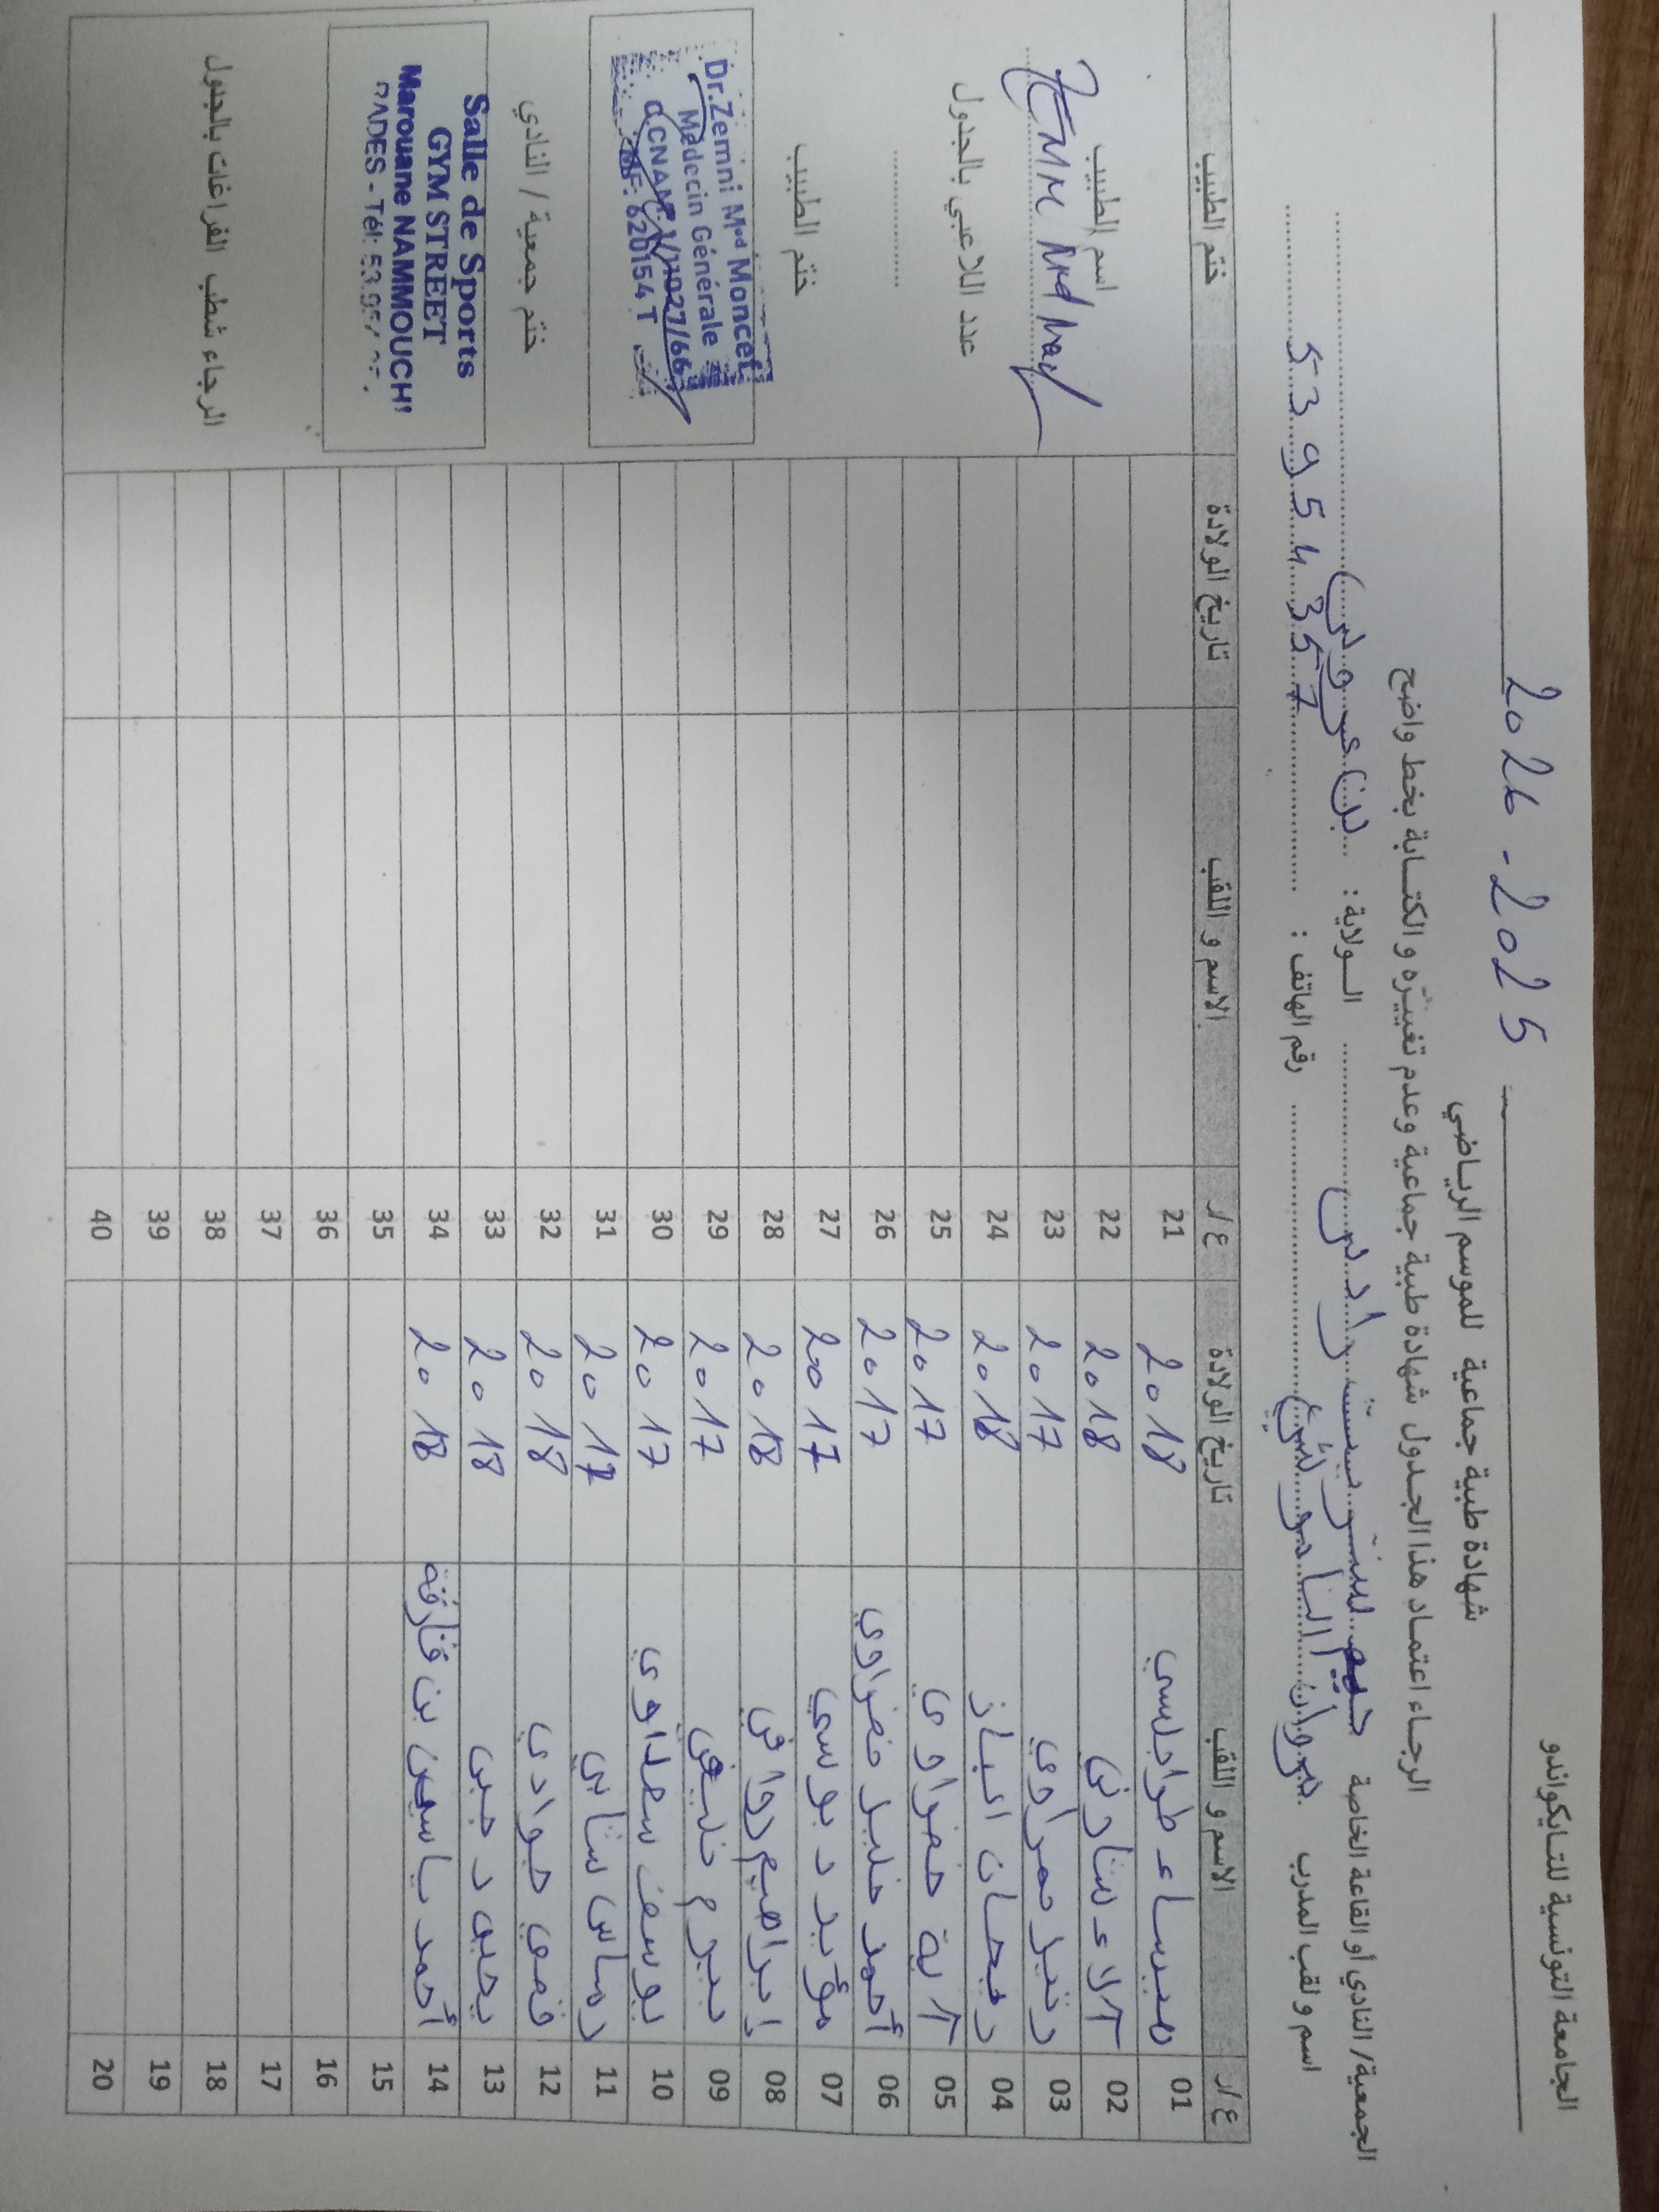 الجامعة التونسية للتايكواندو
2026 - 2025
شهادة طبية جماعية للموسم الرياضي
الرجاء اعتماد هذا الجدول شهادة طبية جماعية وعدم تغييره والكتابة بخط واضح
الجمعية/ النادي أو القاعة الخاصة جيم ستريت رادس الولاية : بن عروس
اسم ولقب المدرب مروان الناموشي رقم الهاتف : 53954357
ع/ر الاسم و اللقب تاريخ الولادة ع/ر الاسم و اللقب تاريخ الولادة ختم الطبيب
01 ميساء طرابلسي 2018 21
02 آلاء 2018 22
03 حمراوي 2017 23
04 2018 24
05 آية خضراوي 2017 25
06 أحمد خليل خضراوي 2017 26
07 مؤيد دبوسي 2017 27
08 إبراهيم 2018 28
09 بيرم 2017 29
10 يوسف سعداوي 2017 30
11 2017 31
12 قصي جوادي 2018 32
13 2018 33
14 أحمد ياسين بن 2018 34
15 35
16 36
17 37
18 38
19 39
20 40
اسم الطبيب
عدد اللاعبي بالجدول
ختم الطبيب
Dr.Zemni Med Moncef
Médecin Générale
CNAM: 1/11027/66
620154 T
ختم جمعية / النادي
Salle de Sports
GYM STREET
Marouane NAMMOUCHI
RADES - Tél: 53
الرجاء شطب الفراغات بالجدول